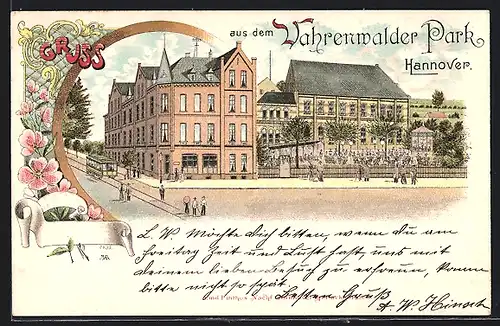 GRUSS
aus dem Vahrenwalder Park
Hannover.
L. W. Möchte dich bitten, wenn du am
Freitag Zeit und Lust hast, uns mit
deinem lieben Besuch zu erfreuen, komme
bitte nicht so spät.
Besten Gruß
W. Hinsch